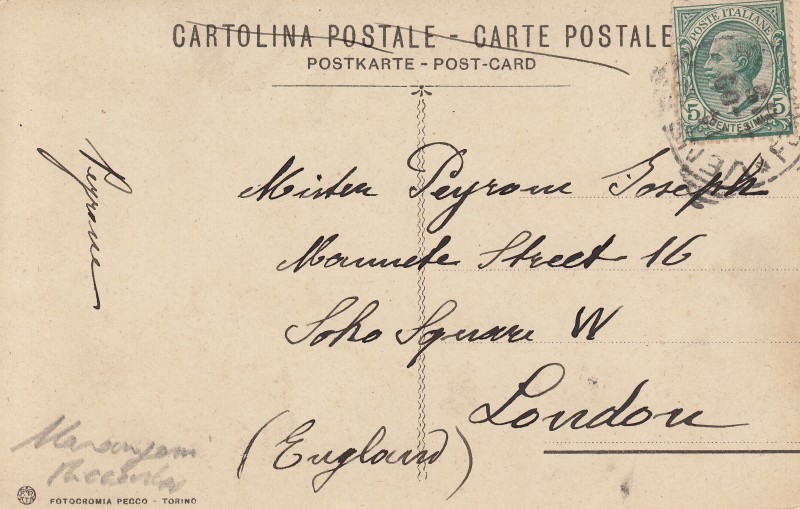 CARTOLINA POSTALE - CARTE POSTALE
POSTKARTE - POST-CARD
POSTE ITALIANE
5 CENTESIMI 5
Peyrone
Mister Peyrone Joseph
Mannete Street 16
Soho Square W
London
(England)
FOTOCROMIA PECCO - TORINO